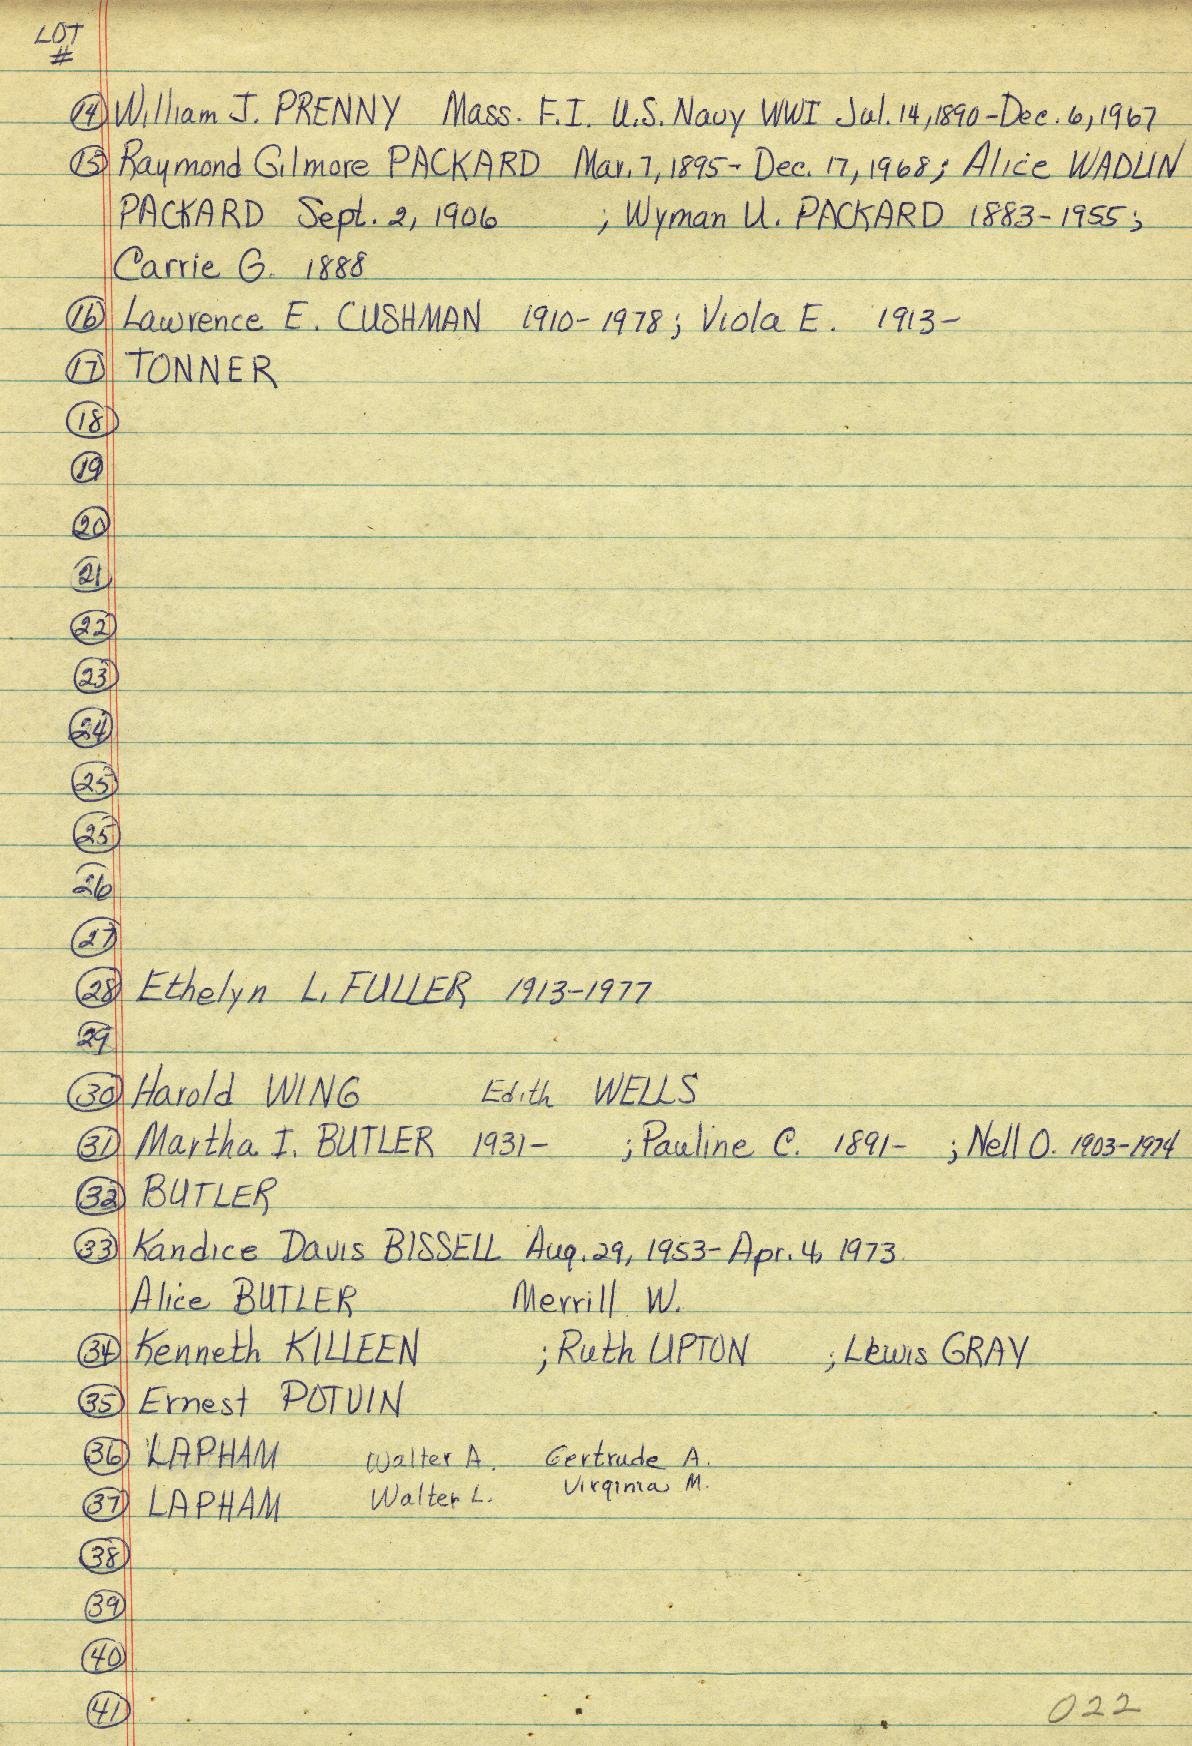 LOT
#
14 William J. PRENNY Mass. F.I. U.S. Navy WWI Jul. 14, 1890 - Dec. 6, 1967
15 Raymond Gilmore PACKARD Mar. 7, 1895 - Dec. 17, 1968; Alice WADLIN
PACKARD Sept. 2, 1906 ; Wyman U. PACKARD 1883-1955;
Carrie G. 1888
16 Lawrence E. CUSHMAN 1910-1978; Viola E. 1913-
17 TONNER
18
19
20
21
22
23
24
25
25
26
27
28 Ethelyn L. FULLER 1913-1977
29
30 Harold WING Edith WELLS
31 Martha I. BUTLER 1931- ; Pauline C. 1891- ; Nell O. 1903-1974
32 BUTLER
33 Kandice Davis BISSELL Aug. 29, 1953 - Apr. 4, 1973
Alice BUTLER Merrill W.
34 Kenneth KILLEEN ; Ruth UPTON ; Lewis GRAY
35 Ernest POTVIN
36 LAPHAM Walter A. Gertrude A.
37 LAPHAM Walter L. Virginia M.
38
39
40
41
022